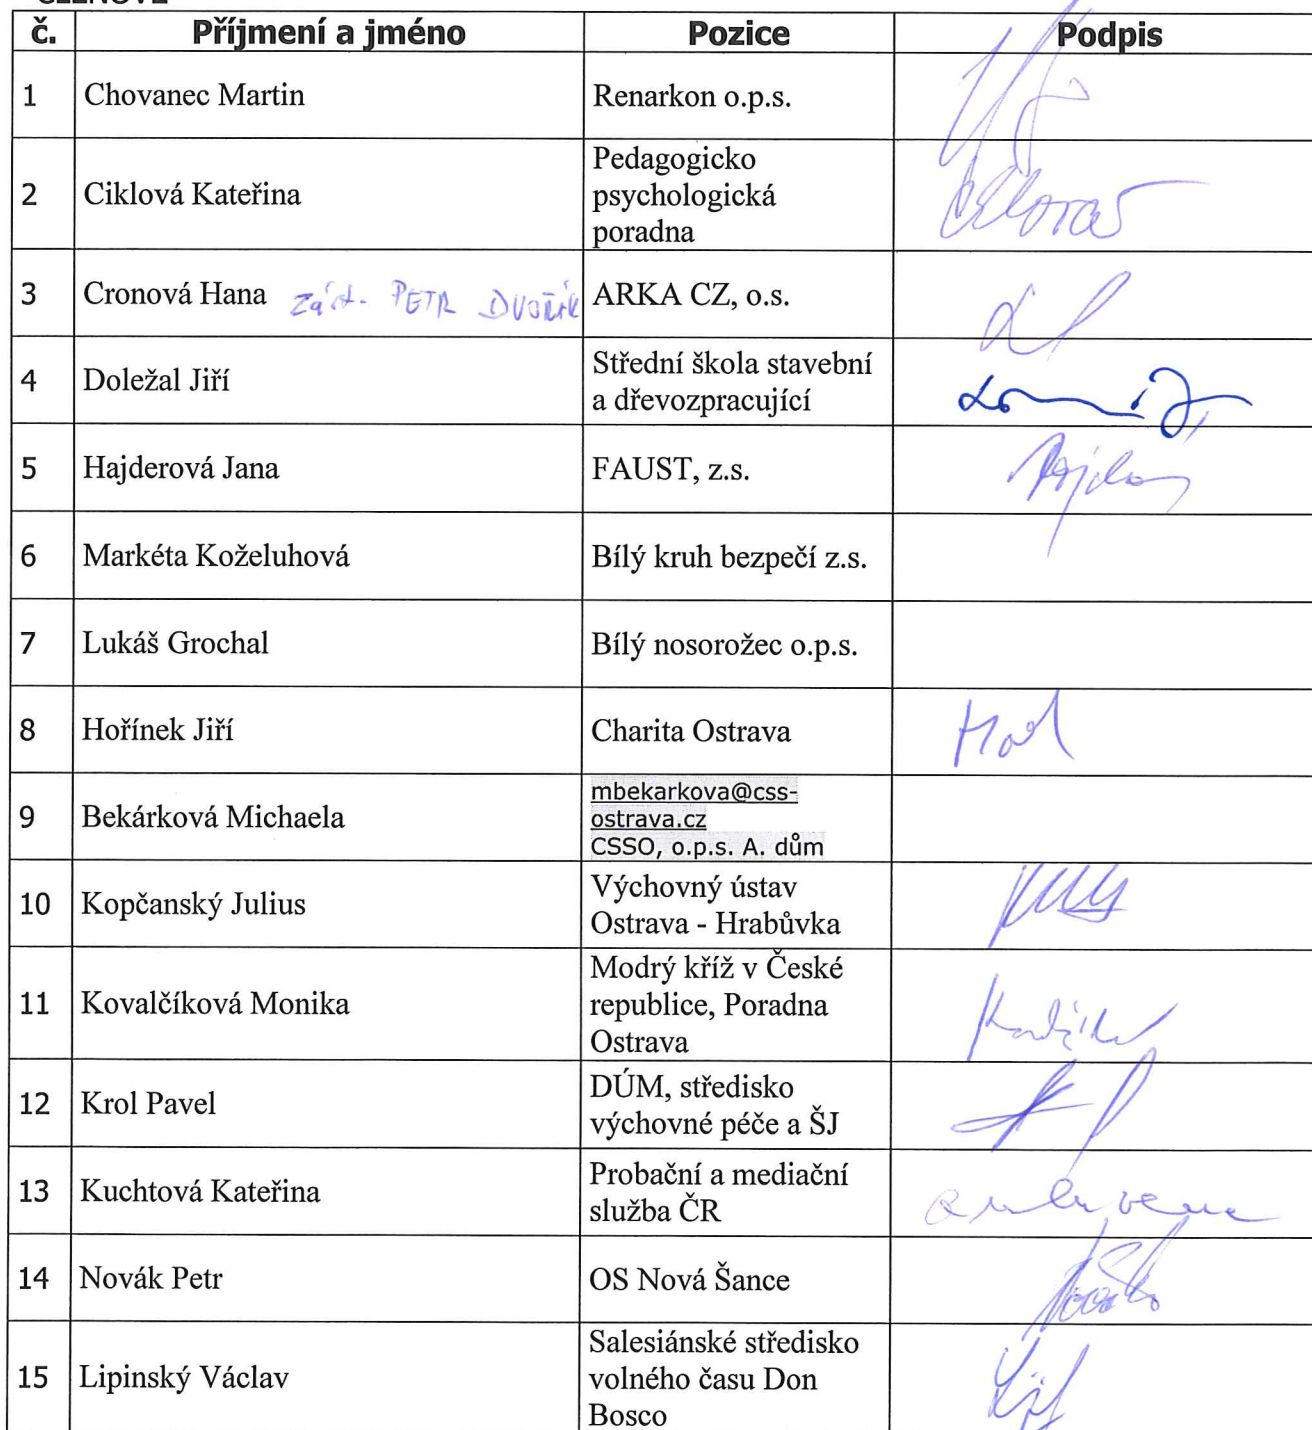 ČLENOVÉ
č. Příjmení a jméno Pozice Podpis
1 Chovanec Martin Renarkon o.p.s.
2 Ciklová Kateřina Pedagogicko
psychologická
poradna
3 Cronová Hana zást. PETR DVOŘÁK ARKA CZ, o.s.
4 Doležal Jiří Střední škola stavební
a dřevozpracující
5 Hajderová Jana FAUST, z.s.
6 Markéta Koželuhová Bílý kruh bezpečí z.s.
7 Lukáš Grochal Bílý nosorožec o.p.s.
8 Hořínek Jiří Charita Ostrava
9 Bekárková Michaela mbekarkova@css-
ostrava.cz
CSSO, o.p.s. A. dům
10 Kopčanský Julius Výchovný ústav
Ostrava - Hrabůvka
11 Kovalčíková Monika Modrý kříž v České
republice, Poradna
Ostrava
12 Krol Pavel DÚM, středisko
výchovné péče a ŠJ
13 Kuchtová Kateřina Probační a mediační
služba ČR
14 Novák Petr OS Nová Šance
15 Lipinský Václav Salesiánské středisko
volného času Don
Bosco